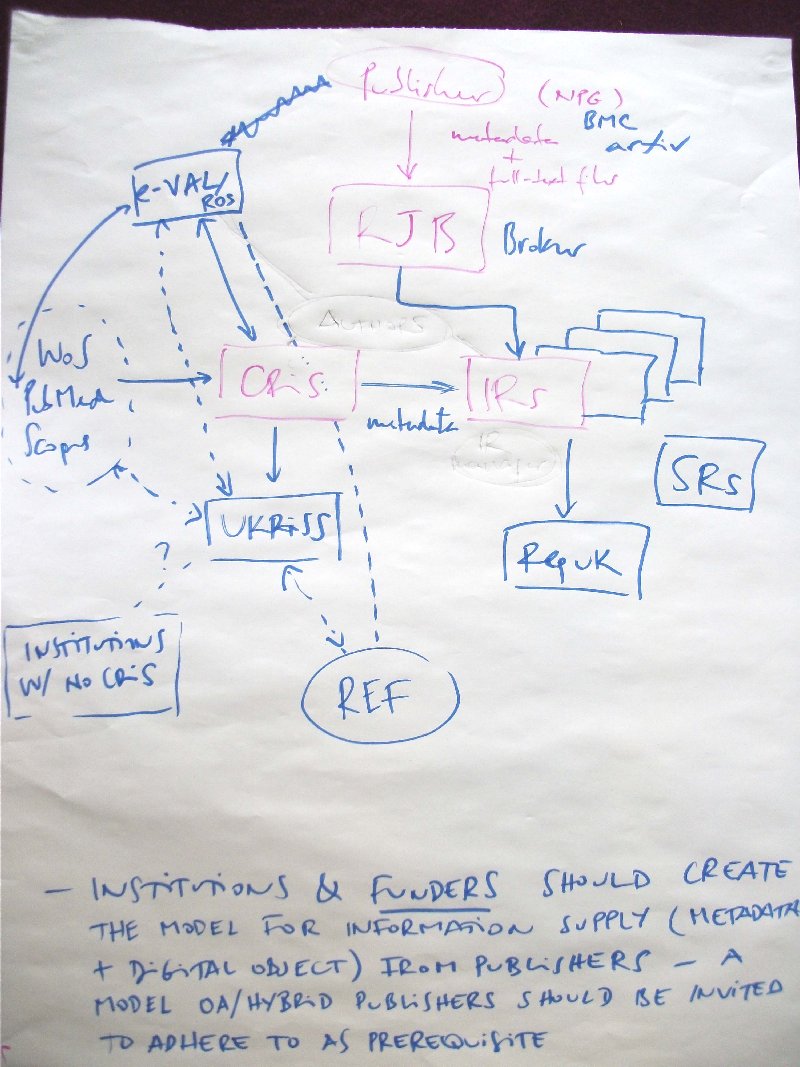 Publisher (NPG)
BMC
arXiv
metadata
+
full-text files
e-VAL/
ROS
RJB
Broker
AUTHORS
WoS
PubMed
Scopus
CRiS
metadata
IRs
IR
manager
SRs
UKRiSS
RepUK
?
INSTITUTIONS
W/ NO CRiS
REF
– INSTITUTIONS & FUNDERS SHOULD CREATE
THE MODEL FOR INFORMATION SUPPLY (METADATA
+ DIGITAL OBJECT) FROM PUBLISHERS – A
MODEL OA/HYBRID PUBLISHERS SHOULD BE INVITED
TO ADHERE TO AS PREREQUISITE